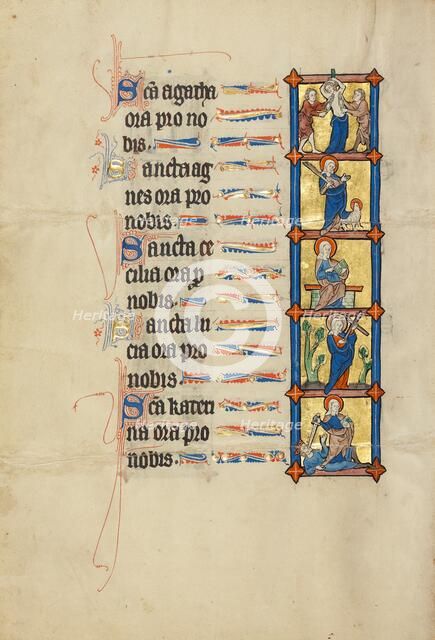 Sca agatha
ora pro no
bis.
Sancta ag
nes ora pro
nobis.
Sancta ce
cilia ora p
nobis.
Sancta lu
cia ora pro
nobis.
Sca kateri
na ora pro
nobis.
Heritage Heritage
Heritage Heritage
Heritage Heritage